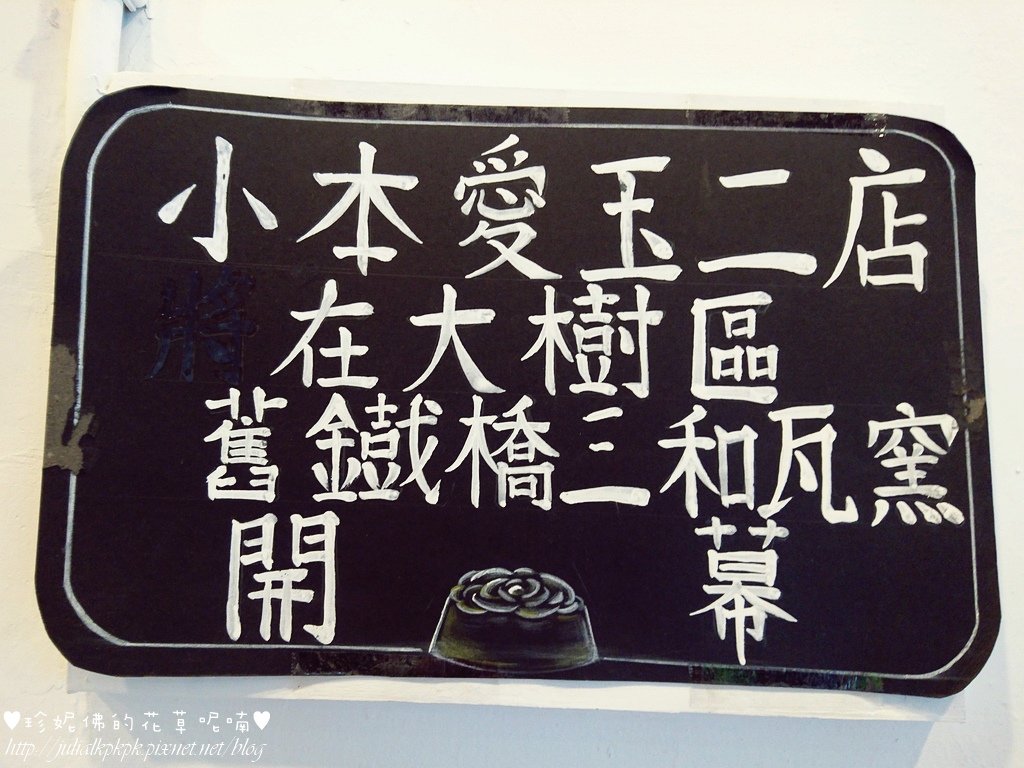 小本愛玉二店
將在大樹區
舊鐵橋三和瓦窑
開幕
♥珍妮佛的花草呢喃♥
http://julialkpkpk.pixnet.net/blog